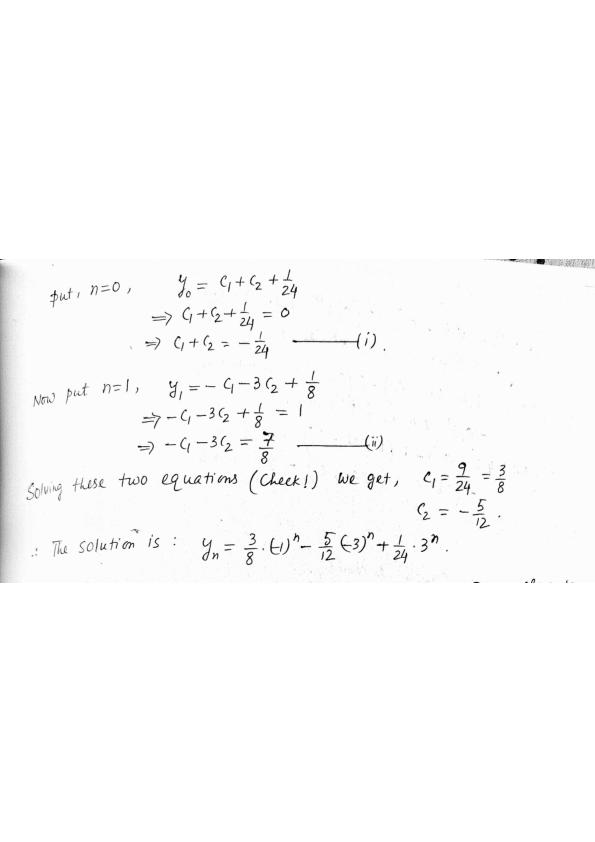 put, n=0, y₀ = C₁+C₂+1/24
⇒ C₁+C₂+1/24 = 0
⇒ C₁+C₂ = -1/24 ———(i).
Now put n=1, y₁ = -C₁-3C₂+1/8
⇒ -C₁-3C₂+1/8 = 1
⇒ -C₁-3C₂ = 7/8 ———(ii).
Solving these two equations (Check!) we get, C₁ = 9/24 = 3/8
C₂ = -5/12.
∴ The solution is : yₙ = 3/8·(-1)ⁿ - 5/12(-3)ⁿ + 1/24·3ⁿ.